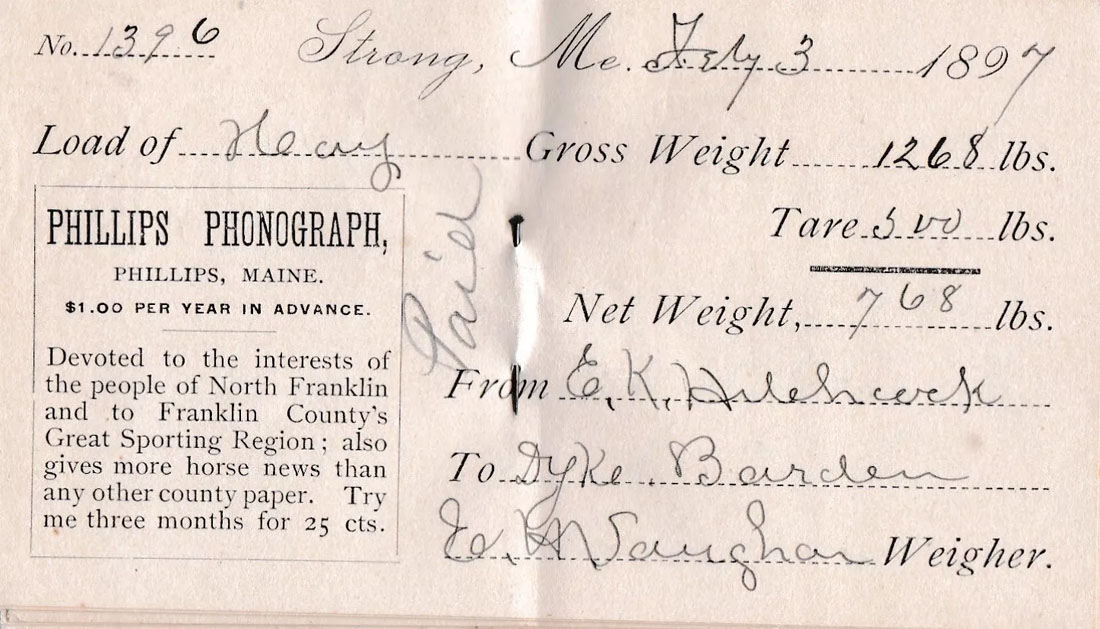 No. 1396 Strong, Me. Feby 3 1897
Load of Heay Gross Weight 1268 lbs.
Tare 500 lbs.
Net Weight, 768 lbs.
From E. K. Hitchcock
To Dyke Barden
E. H Vaughan Weigher.
Paid
PHILLIPS PHONOGRAPH,
PHILLIPS, MAINE.
$1.00 PER YEAR IN ADVANCE.
Devoted to the interests of
the people of North Franklin
and to Franklin County's
Great Sporting Region; also
gives more horse news than
any other county paper. Try
me three months for 25 cts.